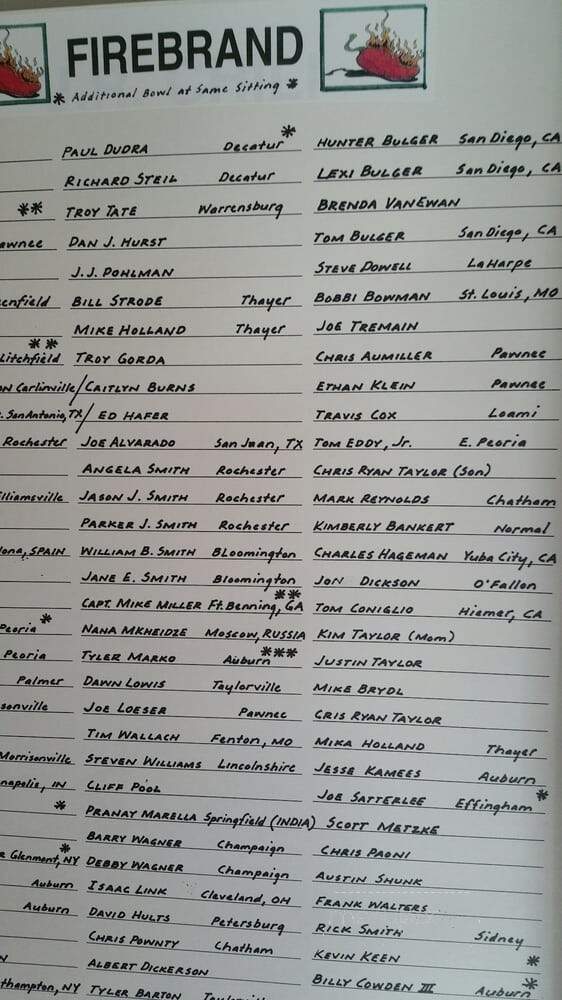 FIREBRAND
* Additional Bowl at Same Sitting *
PAUL DUDRA Decatur *
RICHARD STEIL Decatur
** TROY TATE Warrensburg
awnee DAN J. HURST
J.J. POHLMAN
enfield BILL STRODE Thayer
MIKE HOLLAND Thayer
** Litchfield TROY GORDA
ON Carlinville/CAITLYN BURNS
. San Antonio, TX/ ED HAFER
Rochester JOE ALVARADO San Juan, TX
ANGELA SMITH Rochester
lliamsville JASON J. SMITH Rochester
PARKER J. SMITH Rochester
lona, SPAIN WILLIAM B. SMITH Bloomington
JANE E. SMITH Bloomington
CAPT. MIKE MILLER Ft. Benning, GA **
Peoria * NANA MKHEIDZE Moscow, RUSSIA
Peoria TYLER MARKO Auburn ***
Palmer DAWN LOWIS Taylorville
sonville JOE LOESER Pawnee
TIM WALLACH Fenton, MO
Morrisonville STEVEN WILLIAMS Lincolnshire
napolis, IN CLIFF POOL
* PRANAY MARELLA Springfield (INDIA)
BARRY WAGNER Champaign
Glenmont, NY * DEBBY WAGNER Champaign
Auburn ISAAC LINK Cleveland, OH
Auburn DAVID HULTS Petersburg
CHRIS POWNTY Chatham
N ALBERT DICKERSON
thampton, NY TYLER BARTON
HUNTER BULGER San Diego, CA
LEXI BULGER San Diego, CA
BRENDA VANEWAN
TOM BULGER San Diego, CA
STEVE DOWELL LaHarpe
BOBBI BOWMAN St. Louis, MO
JOE TREMAIN
CHRIS AUMILLER Pawnee
ETHAN KLEIN Pawnee
TRAVIS COX Loami
TOM EDDY, Jr. E. Peoria
CHRIS RYAN TAYLOR (Son)
MARK REYNOLDS Chatham
KIMBERLY BANKERT Normal
CHARLES HAGEMAN Yuba City, CA
JON DICKSON O'Fallon
TOM CONIGLIO Hiemer, CA
KIM TAYLOR (Mom)
JUSTIN TAYLOR
MIKE BRYDL
CRIS RYAN TAYLOR
MIKA HOLLAND Thayer
JESSE KAMEES Auburn
JOE SATTERLEE Effingham *
SCOTT METZKE
CHRIS PAONI
AUSTIN SHUNK
FRANK WALTERS
RICK SMITH Sidney
KEVIN KEEN *
BILLY COWDEN III Auburn *